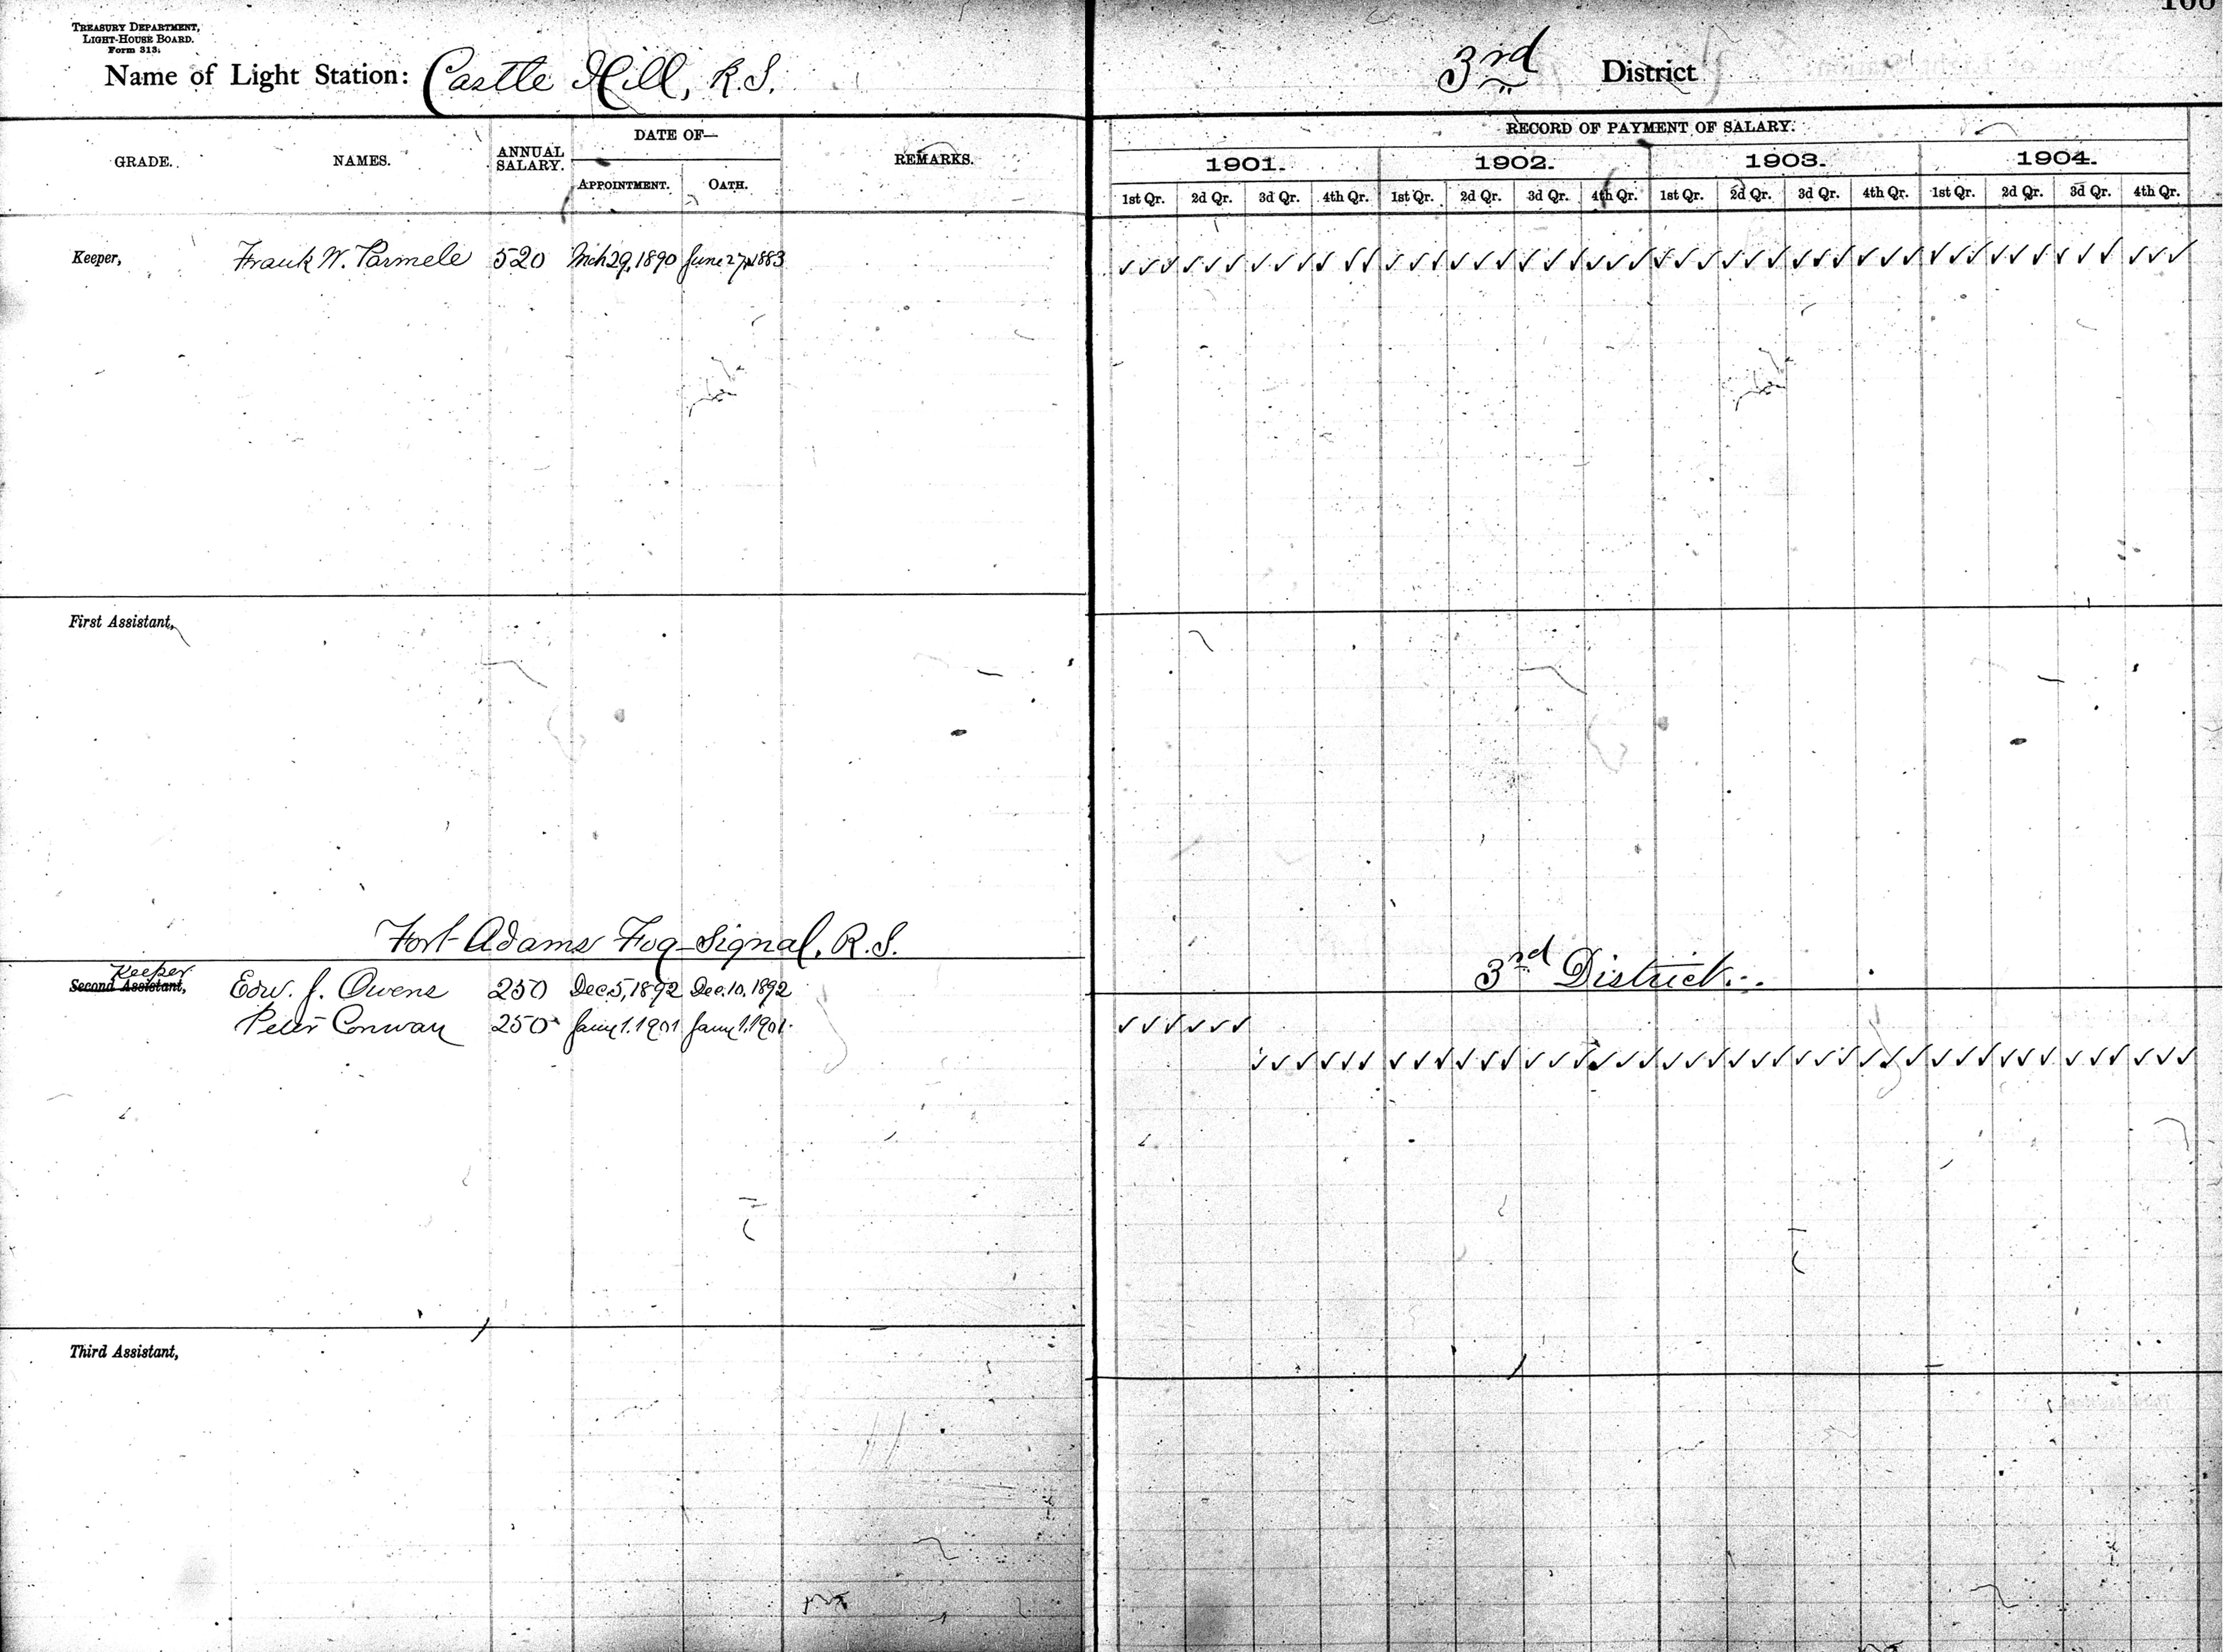 TREASURY DEPARTMENT,
LIGHT-HOUSE BOARD.
Form 313.
Name of Light Station: Castle Hill, R.I.
3rd District
RECORD OF PAYMENT OF SALARY.
GRADE. NAMES. ANNUAL SALARY. DATE OF— REMARKS.
APPOINTMENT. OATH.
1901. 1902. 1903. 1904.
1st Qr. 2d Qr. 3d Qr. 4th Qr. 1st Qr. 2d Qr. 3d Qr. 4th Qr. 1st Qr. 2d Qr. 3d Qr. 4th Qr. 1st Qr. 2d Qr. 3d Qr. 4th Qr.
Keeper, Frank W. Parmele 520 Mch 29, 1890 June 27, 1883 ✓✓✓ ✓✓✓ ✓✓✓ ✓✓✓ ✓✓✓ ✓✓✓ ✓✓✓ ✓✓✓ ✓✓✓ ✓✓✓ ✓✓✓ ✓✓✓ ✓✓✓ ✓✓✓ ✓✓✓ ✓✓✓
First Assistant,
Fort Adams Fog-Signal, R.I.
3rd District
Keeper
Second Assistant, Edw. J. Owens 250 Dec. 5, 1892 Dec. 10, 1892
Peter Conway 250 Jany 1. 1901 Jany 1. 1901. ✓✓✓ ✓✓✓
✓✓✓ ✓✓✓ ✓✓✓ ✓✓✓ ✓✓✓ ✓✓✓ ✓✓✓ ✓✓✓ ✓✓✓ ✓✓✓ ✓✓✓ ✓✓✓ ✓✓✓ ✓✓✓
Third Assistant,